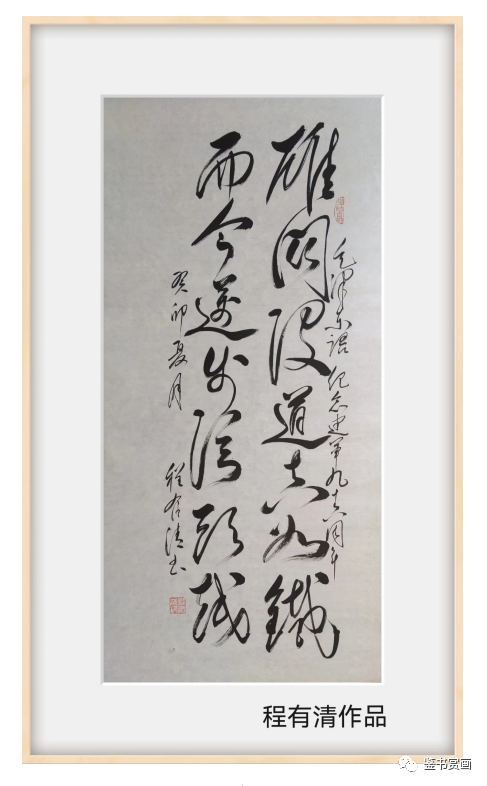 毛泽东语 纪念建军九十六周年
雄關漫道真如鐵
而今邁步從頭越
癸卯夏月 程有清书
程有清作品
鉴书赏画